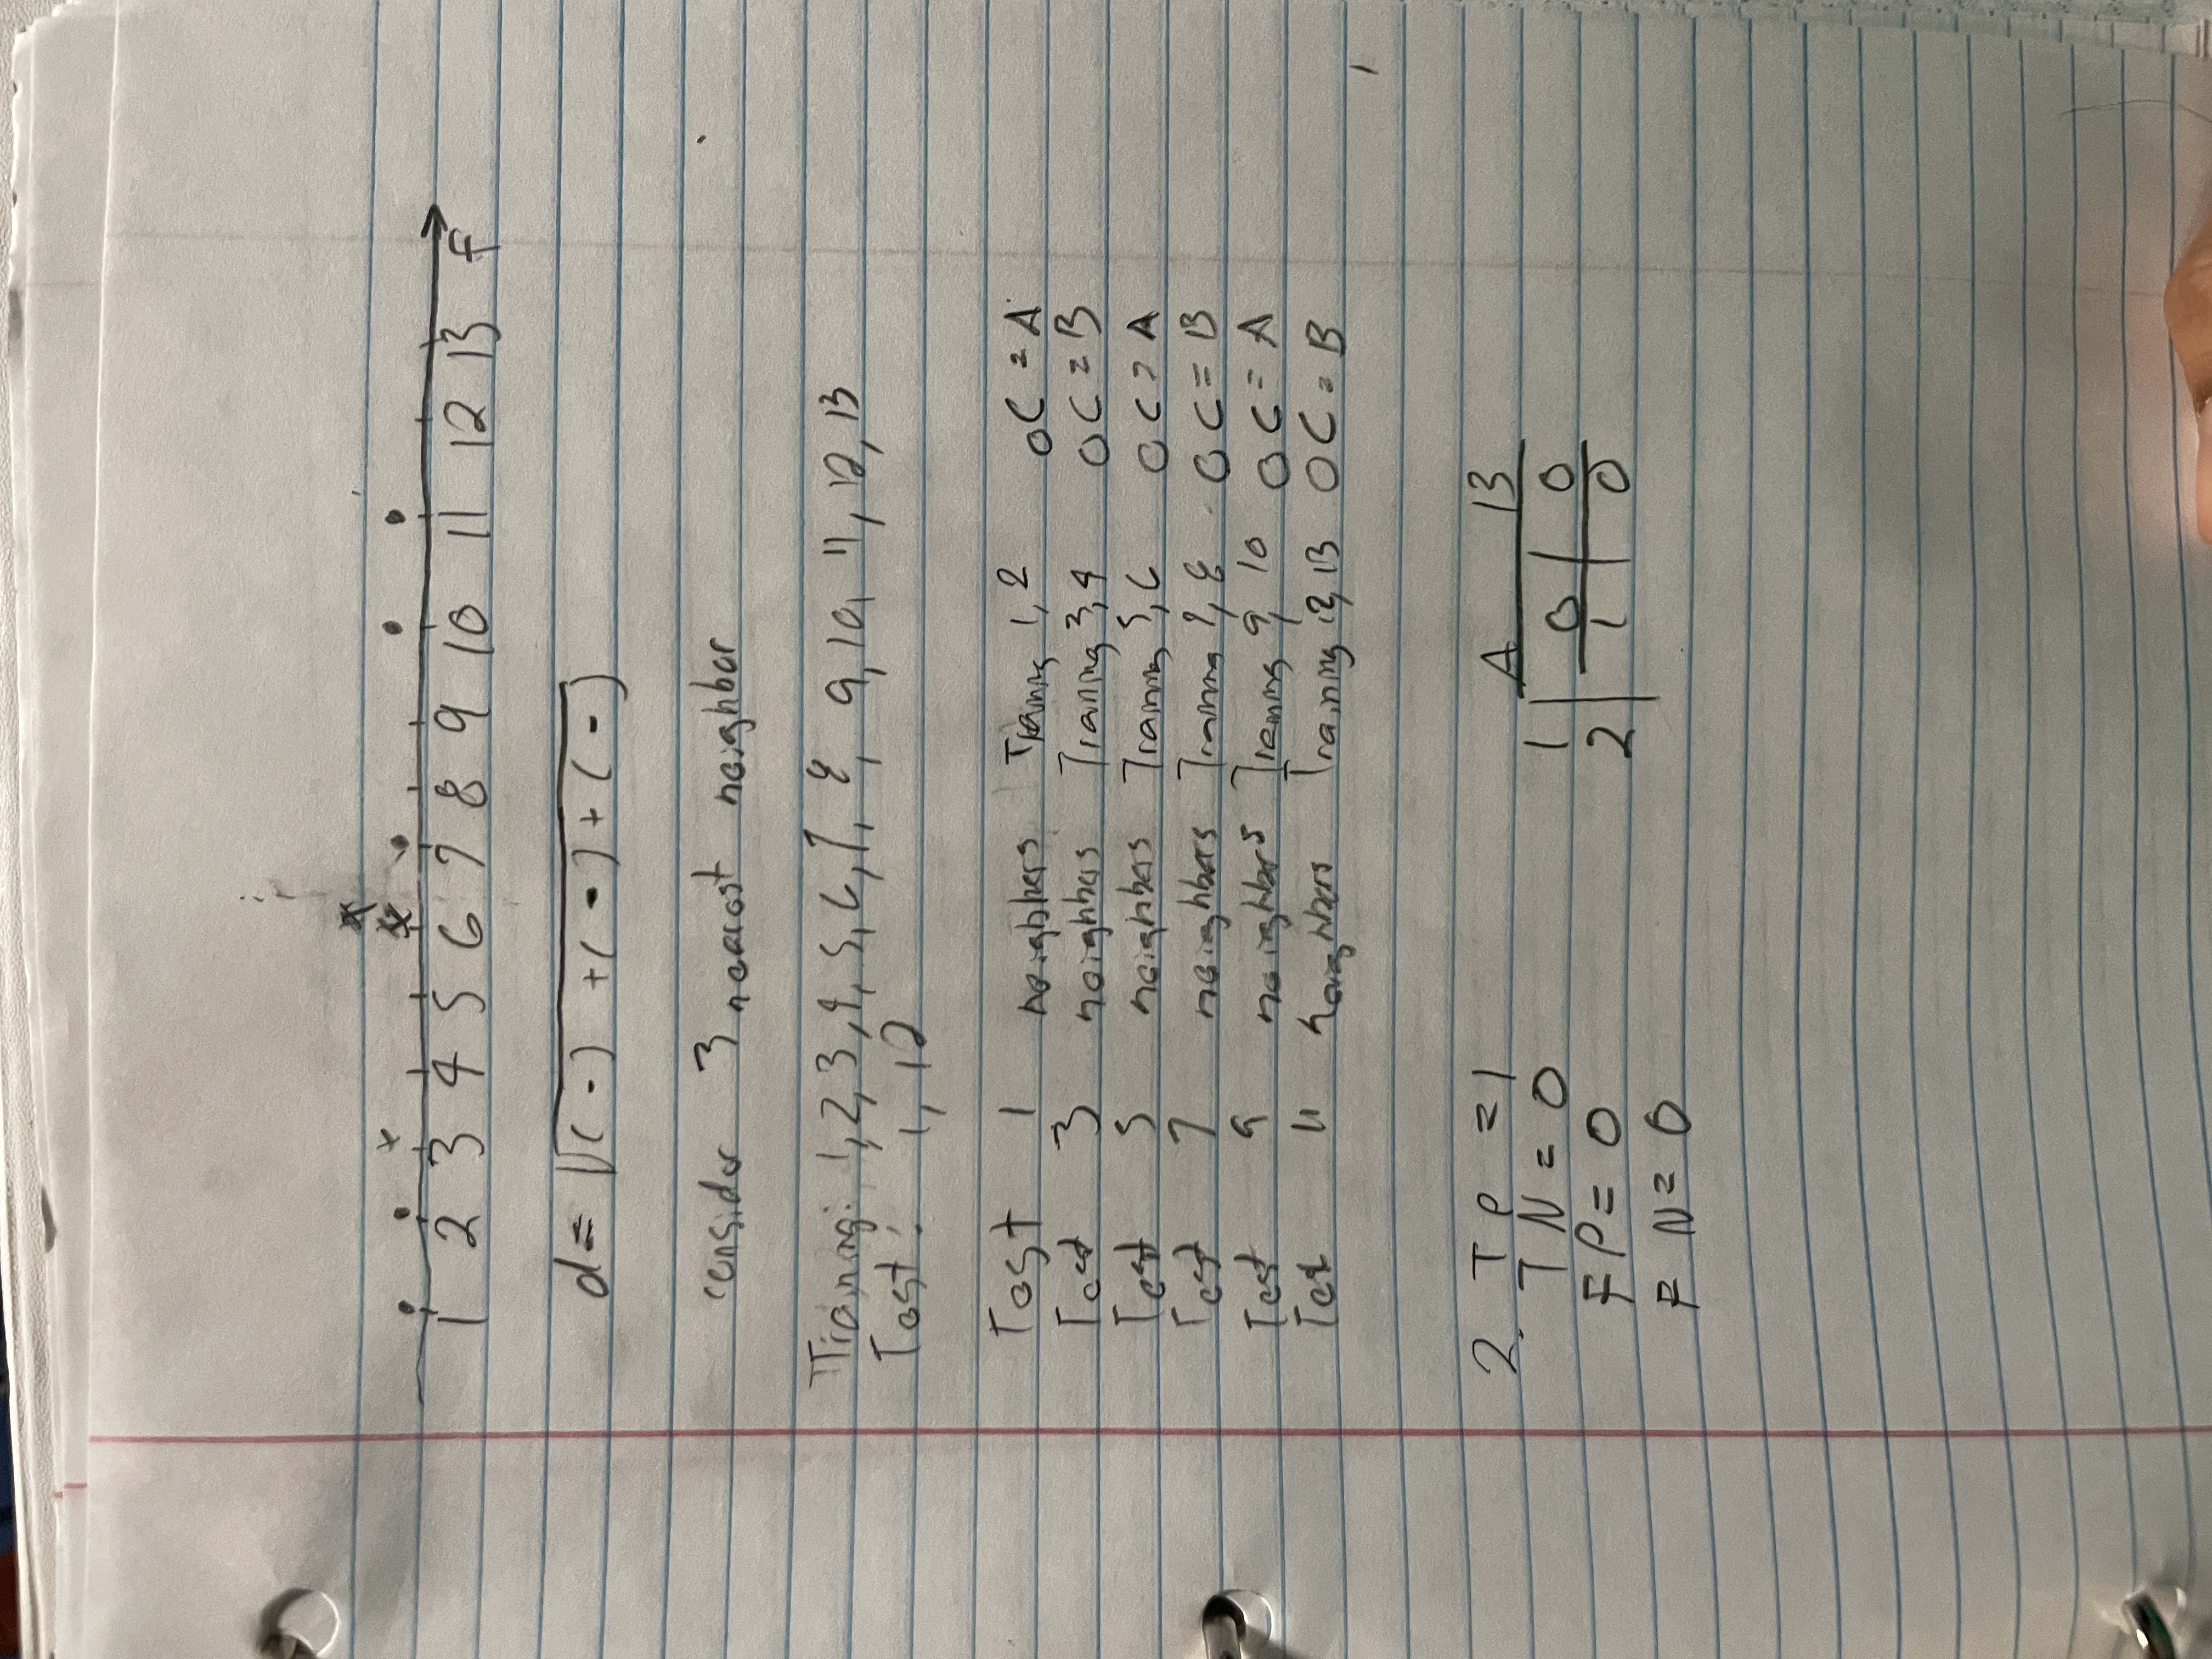 1 2 3 4 5 6 7 8 9 10 11 12 13 F
d = √(-) + (-) + (-)
consider 3 nearest neighbor
Training: 1, 2, 3, 4, 5, 6, 7, 8, 9, 10, 11, 12, 13
Test: 1, 12
Test 1 neighbers Training 1, 2 OC = A
Test 3 neighbers Training 3, 4 OC = B
Test 5 neighbers Training 5, 6 OC = A
Test 7 neighbers Training 7, 8 OC = B
Test 9 neighbers Training 9, 10 OC = A
Test 11 neighbers Training 12, 13 OC = B
2. TP = 1 A B
TN = 0 1 0 0
FP = 0 2 1 0
FN = 0